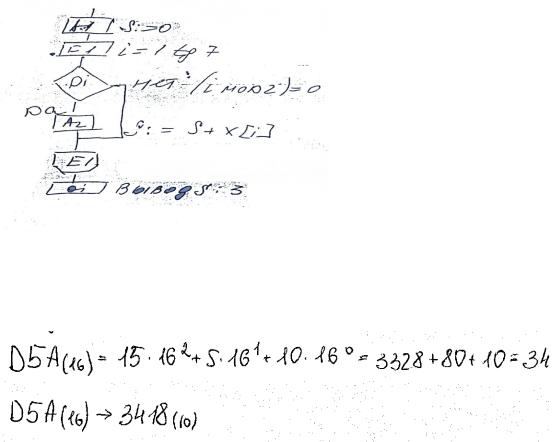 A1 S:=0
E1 i=1 to 7
Di нет (i mod 2)=0
Да
A2 S:= S+x[i]
E1
вывод S:3
D5A(16) = 15·16² + 5·16¹ + 10·16⁰ = 3328 + 80 + 10 = 34
D5A(16) → 3418(10)